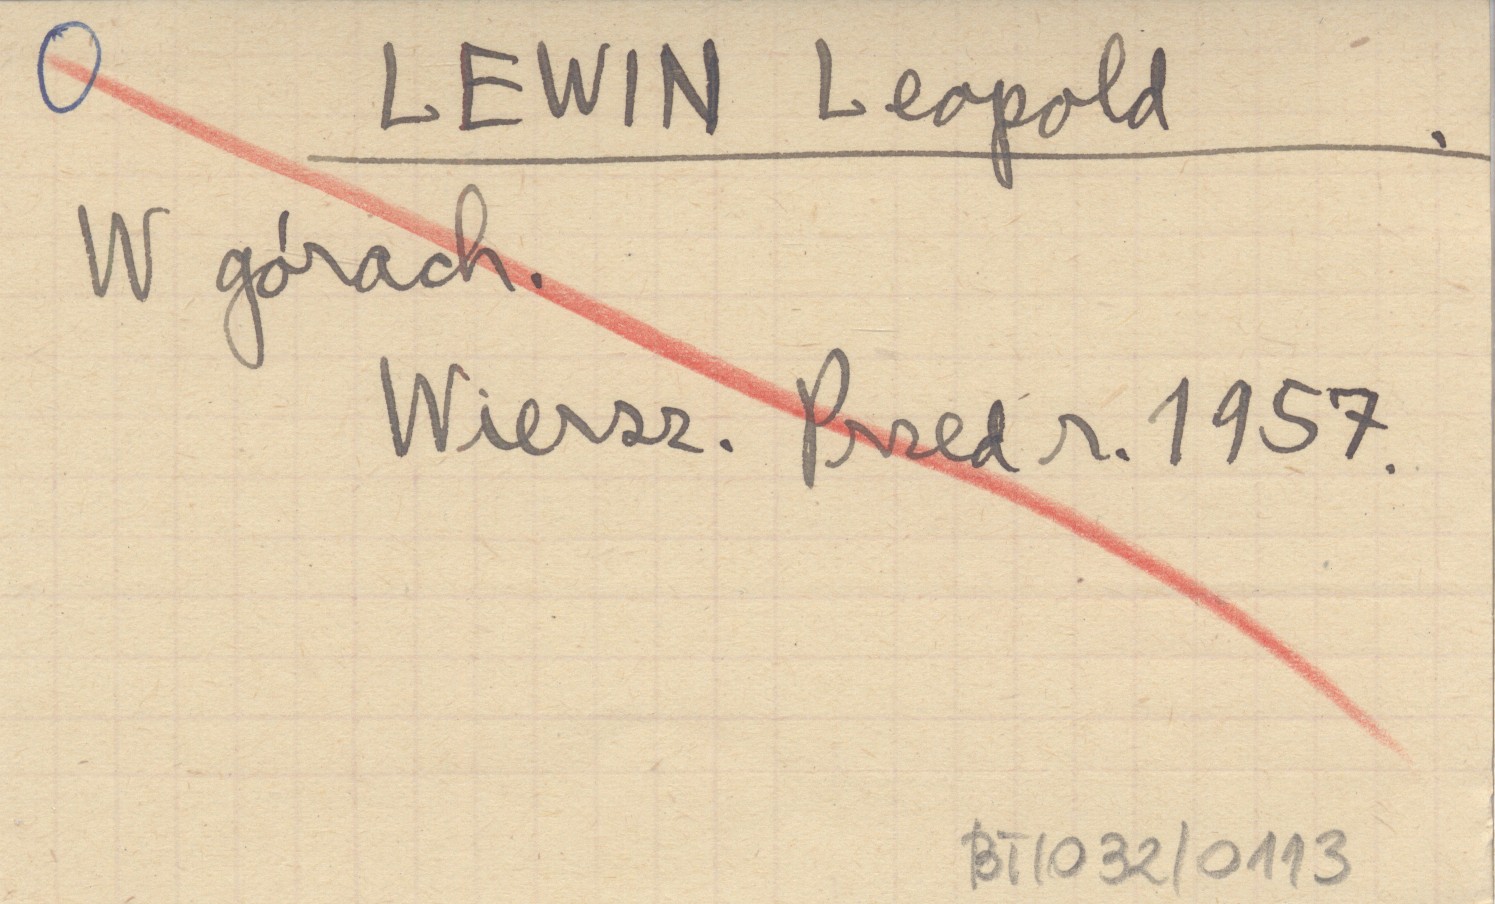 LEWIN Leopold.
W górach.
Wiersz. Przed r. 1957.
BT/032/0113